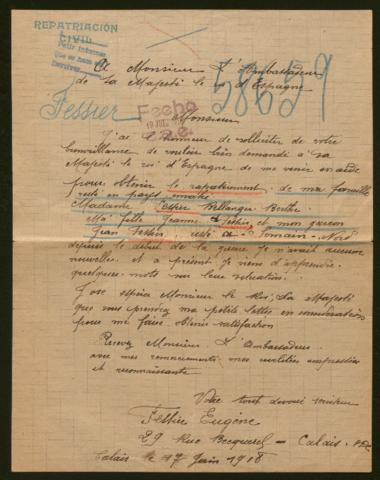 REPATRIACIÓN
CIVIL
58659
Fessier
Fecha
A Monsieur L'Ambassadeur
de La Majesté le roi d'Espagne
Monsieur
J'ai l'honneur de solliciter de votre
bienveillance de vouloir bien demandé a sa
Majesté le roi d'Espagne de me venir en aide
pour obtenir le rapatriement de ma famille
resté en pays envahie
Madame Fessier Bellanger Berthe
Ma fille Jeanne Fessier et mon garçon
Jean Fessier, resté à Somain - Nord
depuis le début de la guerre je n'avait aucune
nouvelles et a présent je viens d'apprendre
quelques mots sur leur situation.
J'ose espéré Monsieur le Roi, Sa Majesté
que vous prendrez ma petite lettre en considération
pour me faire obtenir satisfaction
Recevez Monsieur L'Ambassadeur
avec mes remerciements mes
et reconnaissante
Votre tout dévoué serviteur
Fessier Eugène
29 Rue Becquerel - Calais
Calais le 17 Juin 1918